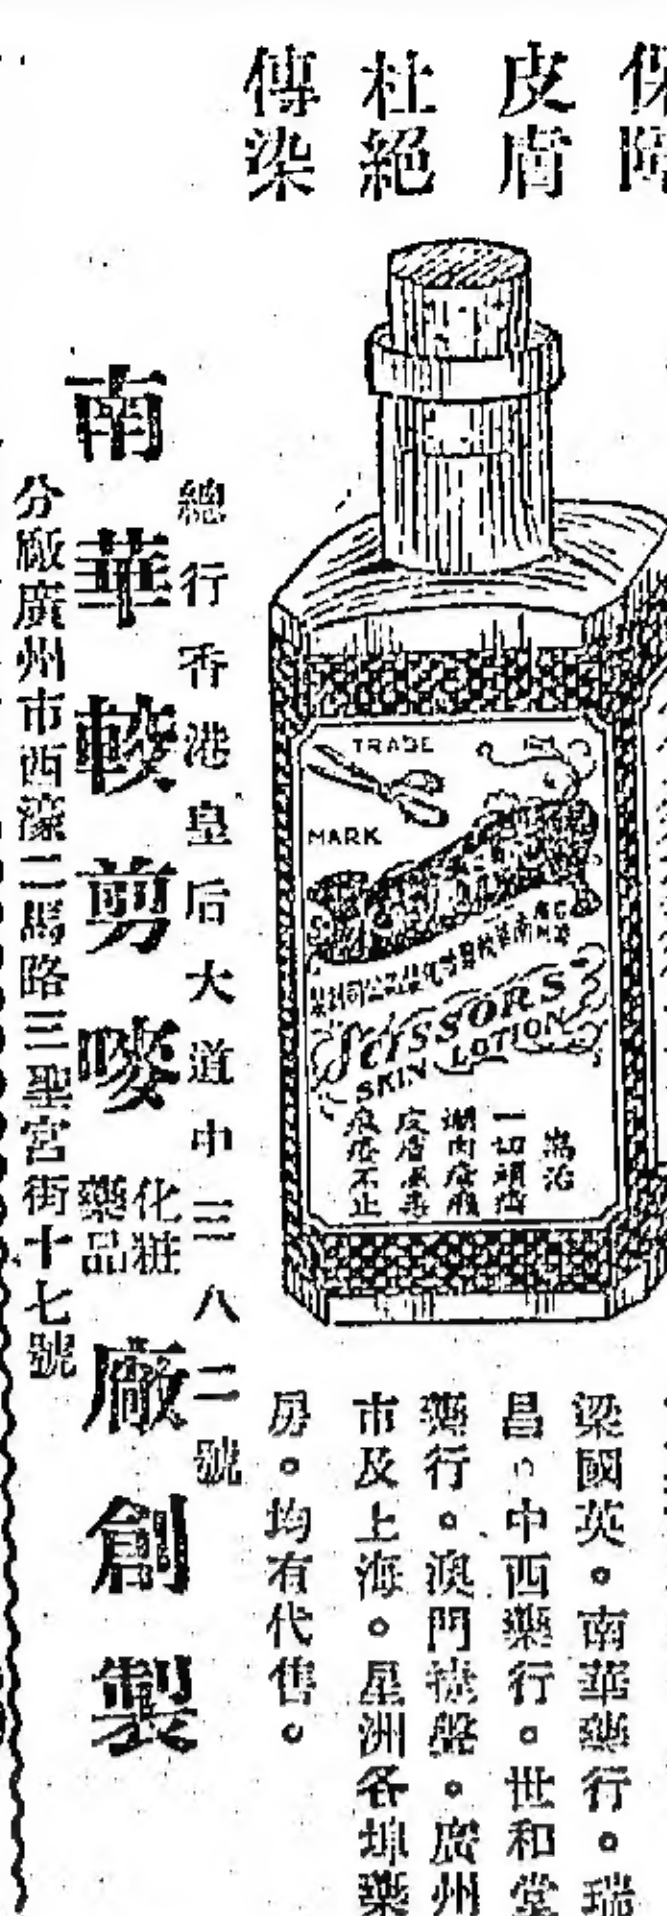 皮膚
杜絕
傳染
TRADE
MARK
SCISSORS
SKIN LOTION
專治
一切頑癬
皮膚
痕癢不止
梁國英。南華藥行。瑞
昌。中西藥行。世和堂
藥行。澳門
盤。廣州
市及上海。星洲各埠藥
房。均有代售。
總行香港皇后大道中三八二號
南華較剪嘜化粧藥品廠創製
分廠廣州市西濠二馬路三聖宮街十七號